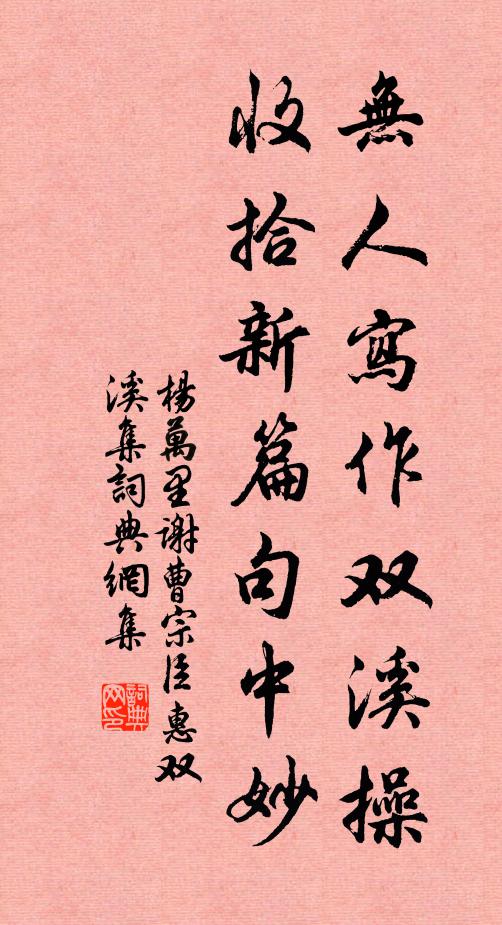 無人寫作双溪操
收拾新篇句中妙
楊萬里谢曹宗臣惠双
溪集詞典網集
詞典网印